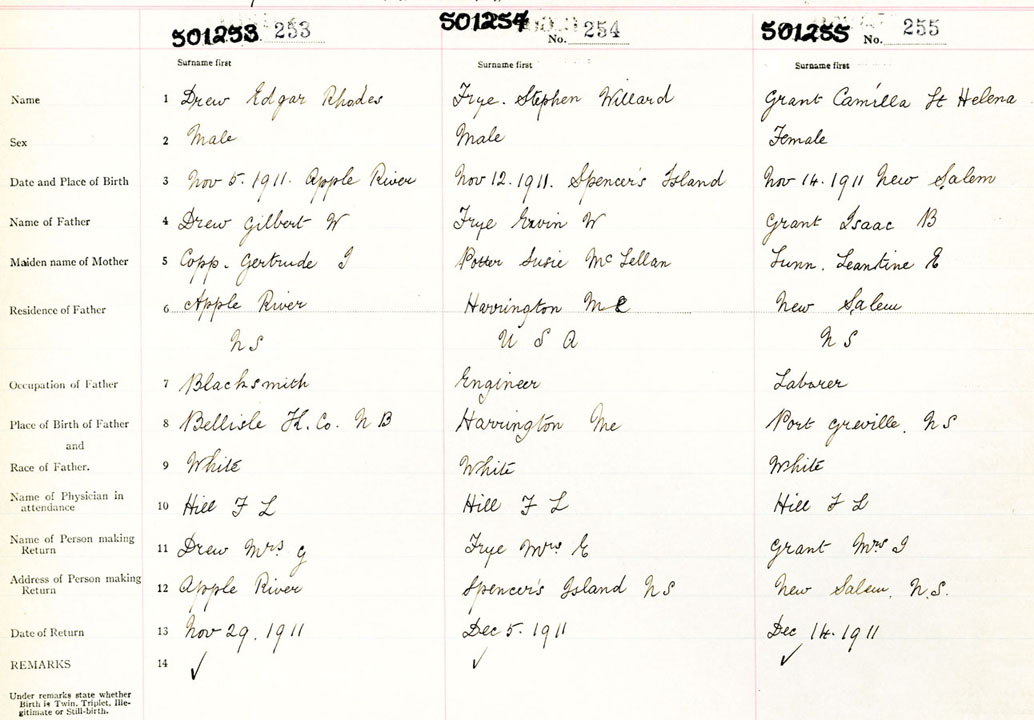 501253 253 501254 No. 254 501255 No. 255
Surname first Surname first Surname first
Name 1 Drew Edgar Rhodes Frye. Stephen Willard Grant Camilla St Helena
Sex 2 Male Male Female
Date and Place of Birth 3 Nov 5. 1911. Apple River Nov 12. 1911. Spencer's Island Nov 14. 1911 New Salem
Name of Father 4 Drew Gilbert W Frye Ervin W Grant Isaac B
Maiden name of Mother 5 Copp. Gertrude I Potter Susie McLellan Lunn. Leantine E
Residence of Father 6 Apple River Harrington Me New Salem
N S U S A N S
Occupation of Father 7 Blacksmith Engineer Laborer
Place of Birth of Father 8 Bellisle K. Co. N B Harrington Me Port Greville. N S
and
Race of Father. 9 White White White
Name of Physician in
attendance 10 Hill F L Hill F L Hill F L
Name of Person making
Return 11 Drew Mrs G Frye Mrs E Grant Mrs I
Address of Person making
Return 12 Apple River Spencer's Island N S New Salem. N.S.
Date of Return 13 Nov 29. 1911 Dec 5. 1911 Dec 14. 1911
REMARKS 14 ✓ ✓ ✓
Under remarks state whether
Birth is Twin, Triplet, Ille-
gitimate or Still-birth.